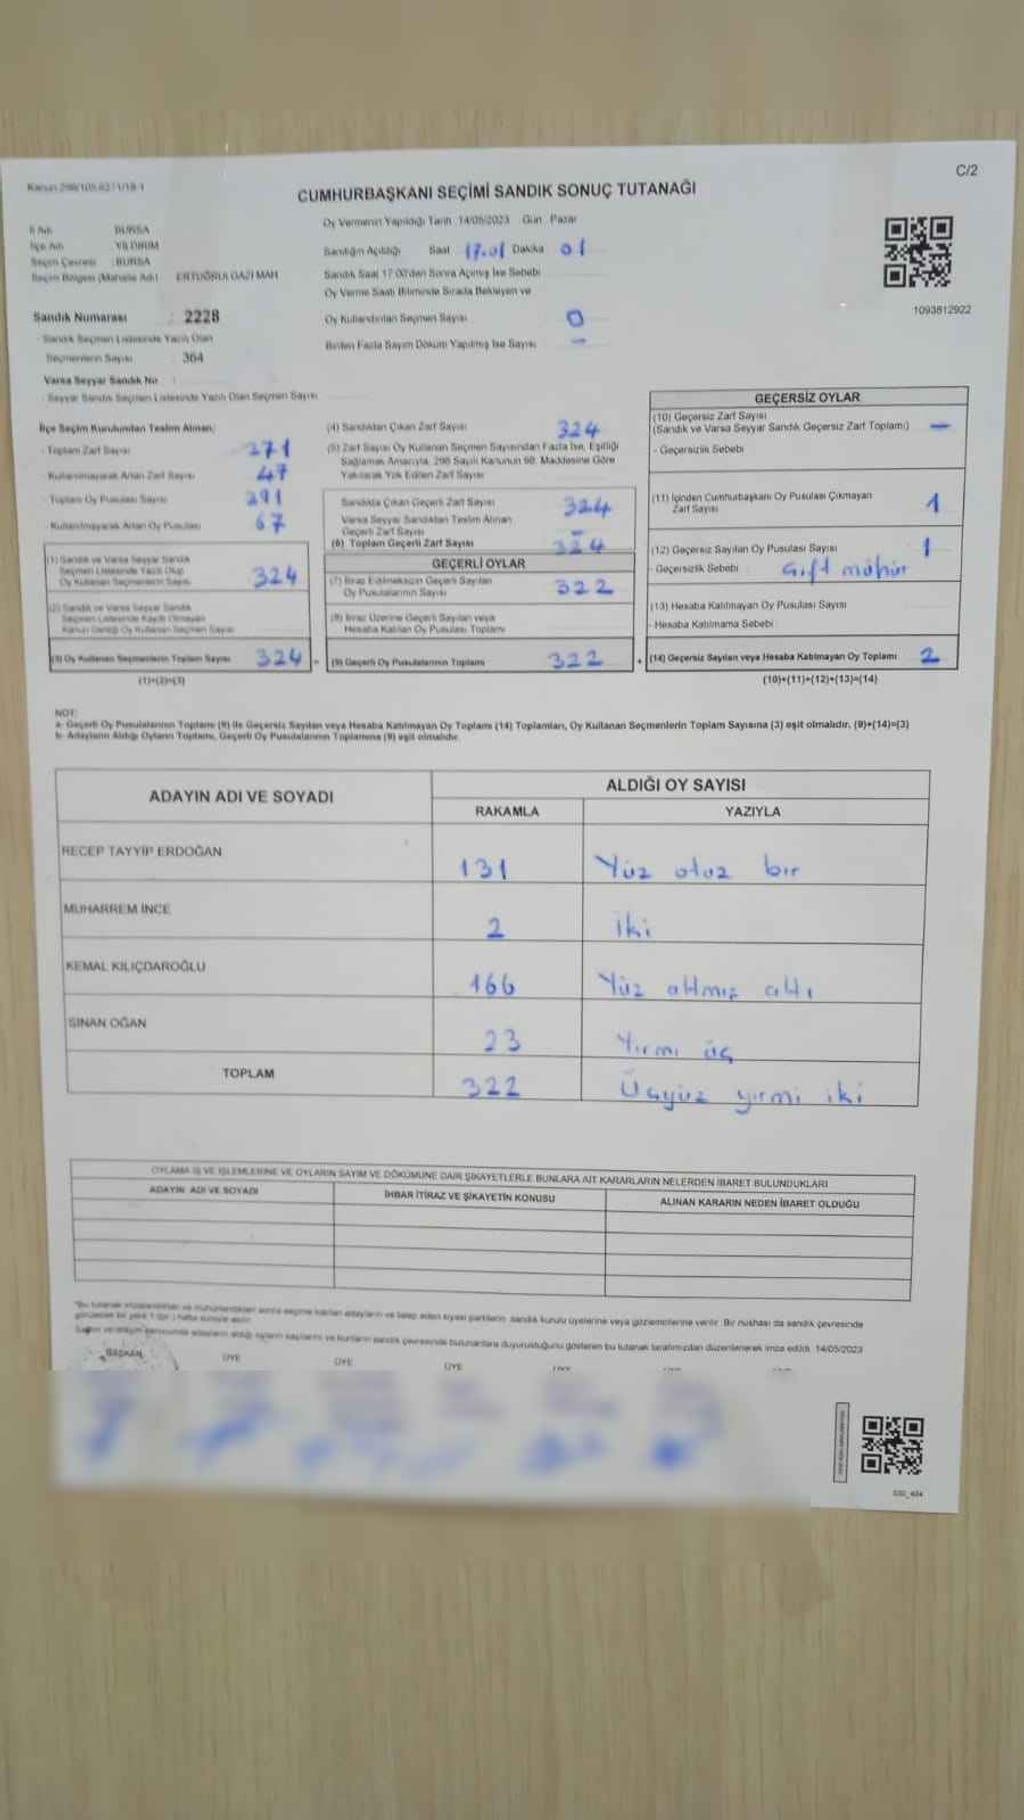 Kanun 298/105
C/2
CUMHURBAŞKANI SEÇİMİ SANDIK SONUÇ TUTANAĞI
Oy Vermenin Yapıldığı Tarih 14/05/2023 Gün Pazar
İl Adı BURSA
İlçe Adı YILDIRIM
Seçim Çevresi BURSA
Seçim Bölgesi (Mahalle Adı) ERTUĞRUL GAZİ MAH
Sandığın Açıldığı Saat 17.01 Dakika 01
Sandık Saat 17:00'den Sonra Açılmış İse Sebebi
Oy Verme Saati Bitiminde Sırada Bekleyen ve
Oy Kullandırılan Seçmen Sayısı 0
Birden Fazla Sayım Döküm Yapılmış İse Sayısı -
1093812922
Sandık Numarası : 2228
Sandık Seçmen Listesinde Yazılı Olan
Seçmenlerin Sayısı 364
Varsa Seyyar Sandık No
Seyyar Sandık Seçmen Listesinde Yazılı Olan Seçmen Sayısı
İlçe Seçim Kurulundan Teslim Alınan;
- Toplam Zarf Sayısı 371
Kullanılmayarak Artan Zarf Sayısı 47
- Toplam Oy Pusulası Sayısı 391
- Kullanılmayarak Artan Oy Pusulası 67
(1) Sandık ve Varsa Seyyar Sandık
Seçmen Listesinde Yazılı Olup
Oy Kullanan Seçmenlerin Sayısı 324
(2) Sandık ve Varsa Seyyar Sandık
Seçmen Listesinde Kayıtlı Olmayan
Kanun Gereği Oy Kullanan Seçmen Sayısı
(3) Oy Kullanan Seçmenlerin Toplam Sayısı 324
(1)+(2)=(3)
(4) Sandıktan Çıkan Zarf Sayısı 324
(5) Zarf Sayısı Oy Kullanan Seçmen Sayısından Fazla İse, Eşitliği
Sağlamak Amacıyla, 298 Sayılı Kanunun 98. Maddesine Göre
Yakılarak Yok Edilen Zarf Sayısı
Sandıkta Çıkan Geçerli Zarf Sayısı 324
Varsa Seyyar Sandıktan Teslim Alınan
Geçerli Zarf Sayısı -
(6) Toplam Geçerli Zarf Sayısı 324
GEÇERLİ OYLAR
(7) İtiraz Edilmeksizin Geçerli Sayılan
Oy Pusulalarının Sayısı 322
(8) İtiraz Üzerine Geçerli Sayılan veya
Hesaba Katılan Oy Pusulası Toplamı
(9) Geçerli Oy Pusulalarının Toplamı 322
GEÇERSİZ OYLAR
(10) Geçersiz Zarf Sayısı
(Sandık ve Varsa Seyyar Sandık Geçersiz Zarf Toplamı) -
- Geçersizlik Sebebi
(11) İçinden Cumhurbaşkanı Oy Pusulası Çıkmayan
Zarf Sayısı 1
(12) Geçersiz Sayılan Oy Pusulası Sayısı 1
- Geçersizlik Sebebi Çift mühür
(13) Hesaba Katılmayan Oy Pusulası Sayısı
- Hesaba Katılmama Sebebi
+ (14) Geçersiz Sayılan veya Hesaba Katılmayan Oy Toplamı 2
(10)+(11)+(12)+(13)=(14)
NOT:
a- Geçerli Oy Pusulalarının Toplamı (9) ile Geçersiz Sayılan veya Hesaba Katılmayan Oy Toplamı (14) Toplamları, Oy Kullanan Seçmenlerin Toplam Sayısına (3) eşit olmalıdır. (9)+(14)=(3)
b- Adayların Aldığı Oyların Toplamı, Geçerli Oy Pusulalarının Toplamına (9) eşit olmalıdır.
ADAYIN ADI VE SOYADI ALDIĞI OY SAYISI
RAKAMLA YAZIYLA
RECEP TAYYİP ERDOĞAN 131 Yüz otuz bir
MUHARREM İNCE 2 iki
KEMAL KILIÇDAROĞLU 166 Yüz altmış altı
SİNAN OĞAN 23 Yirmi üç
TOPLAM 322 Üçyüz yirmi iki
OYLAMA İŞ VE İŞLEMLERİNE VE OYLARIN SAYIM VE DÖKÜMÜNE DAİR ŞİKAYETLERLE BUNLARA AİT KARARLARIN NELERDEN İBARET BULUNDUKLARI
ADAYIN ADI VE SOYADI İHBAR İTİRAZ VE ŞİKAYETİN KONUSU ALINAN KARARIN NEDEN İBARET OLDUĞU
sandık kurulu üyelerine veya gözlemcilerine verilir. Bir nüshası da sandık çevresinde
duyurulduğunu gösteren bu tutanak tarafımızdan düzenlenerek imza edildi. 14/05/2023
BAŞKAN ÜYE ÜYE ÜYE